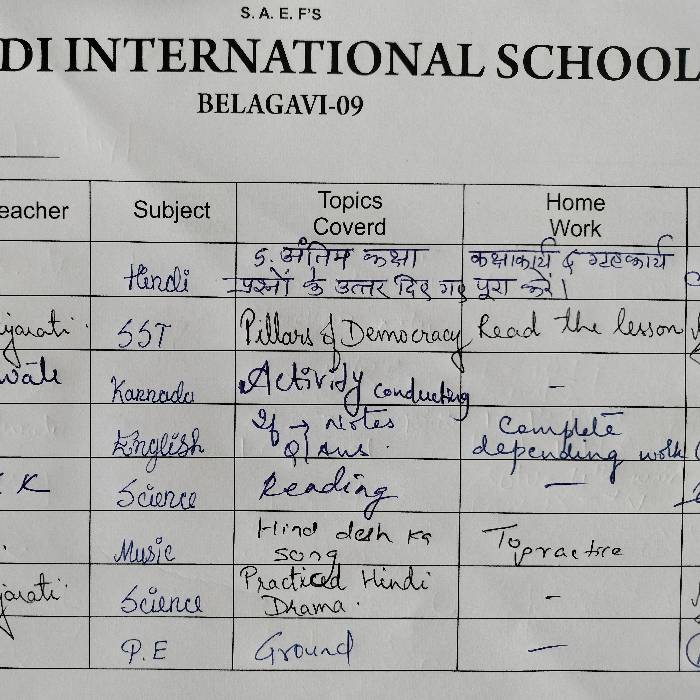 S. A. E. F'S
DI INTERNATIONAL SCHOOL
BELAGAVI-09
eacher Subject Topics Coverd Home Work
Hindi 5. अंतिम कक्षा कक्षाकार्य व गृहकार्य
प्रश्नों के उत्तर दिए गए पूरा करें।
ijarati SST Pillars of Democracy Read the lesson
Kannada Activity conducting –
English → Notes Complete
Q|Ans. depending work
K Science Reading –
Music Hind desh ka To practice
song
jarati Science Practiced Hindi –
Drama.
P.E Ground –